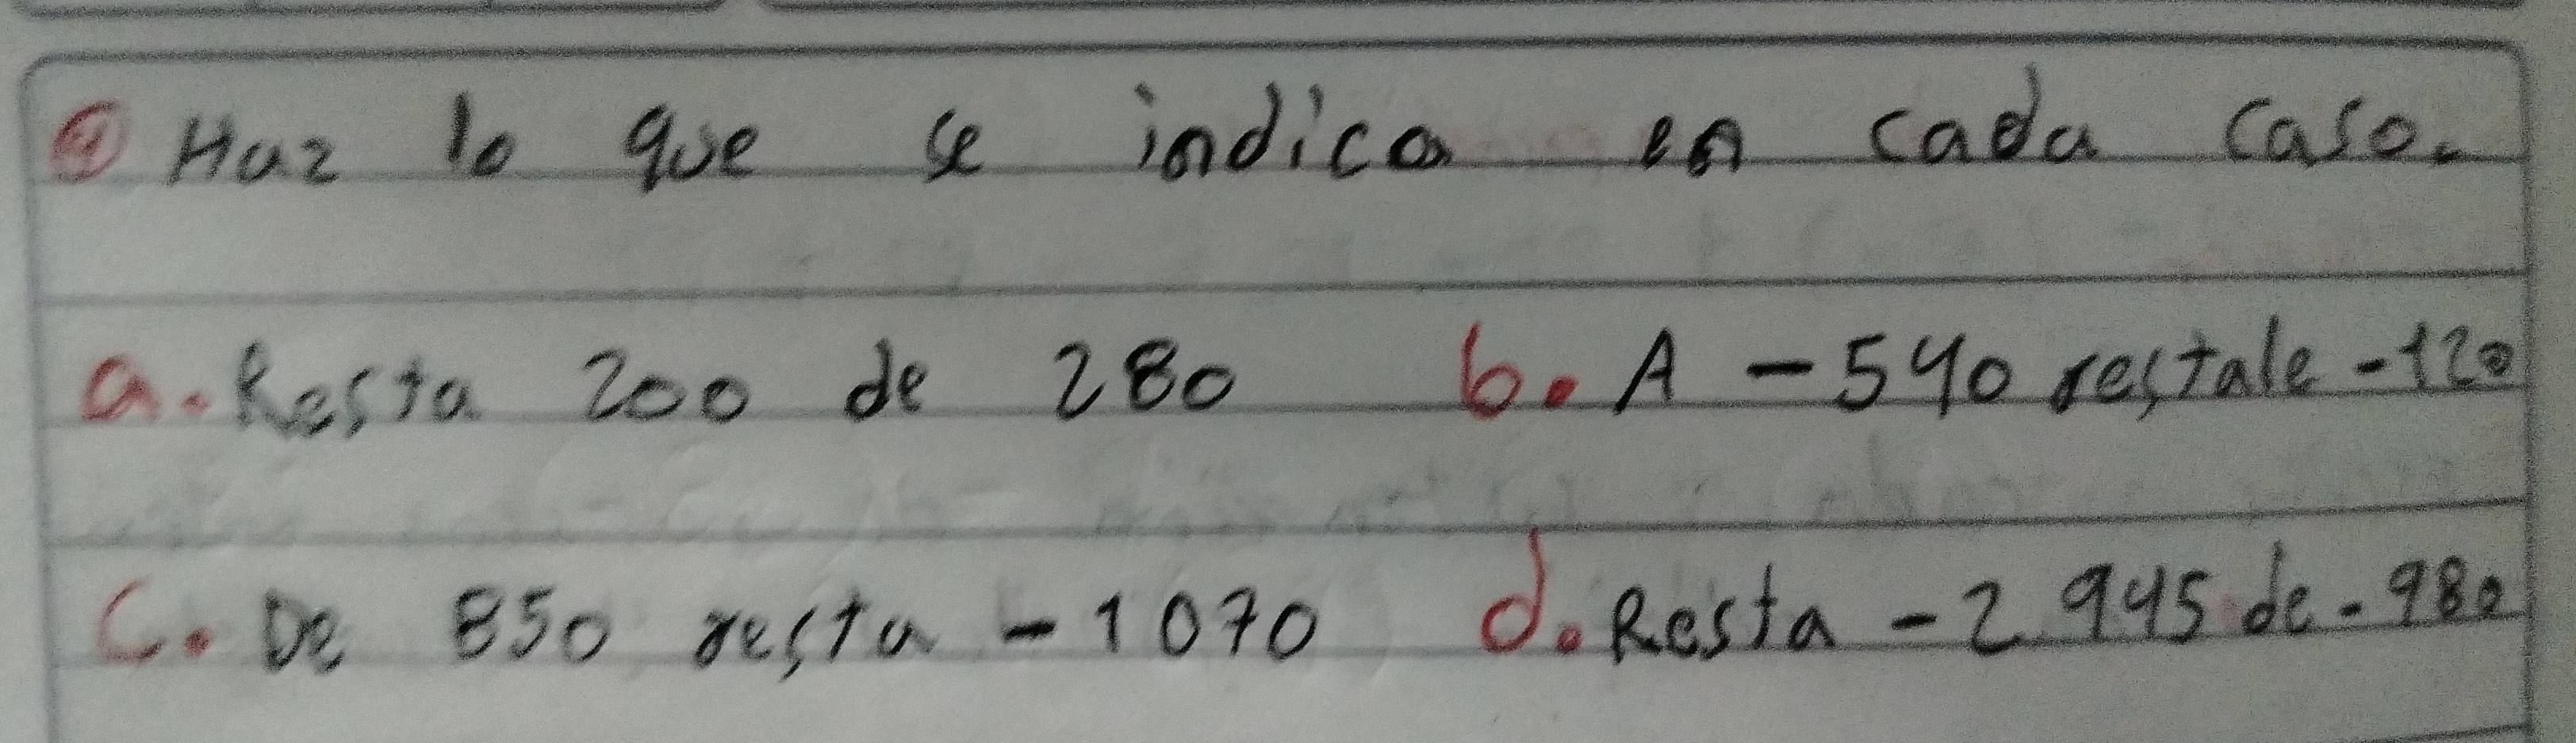 ④ Haz lo que se indica en cada caso.
a. Resta 200 de 280 b. A -540 restale -120
c. De 850 resta -1070 d. Resta -2 945 de -980